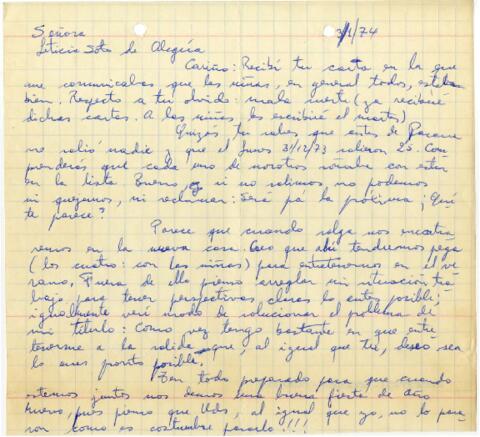 Señora 3/1/74
Leticia Soto de Alegría
Cariño: Recibí tu carta en la que
me comunicabas que las niñas, en general todos, estaban
bien. Respecto a tu olvido: mala suerte (ya recibiré
dichas cartas. A las niñas, les escribiré el martes)
Quizás tu sabes que antes de Pascua
no salió nadie y que el lunes 31/12/73 salieron 25. Com
prenderás que cada uno de nosotros soñaba con estar
en la lista. Bueno, si no salimos no podemos
ni quejarnos, ni reclamar: Será pa la próxima; ¿Qué
te parece?
Parece que cuando salga nos encontra
remos en la nueva casa. Creo que ahí tendremos pega
(los cuatro: con las niñas) para entretenernos en el ve
rano. Fuera de ello pienso arreglar mi situación tra
bajo para tener perspectivas claras lo antes posible;
igualmente veré modo de solucionar el problema de
mi título: Como vez tengo bastante en que entre
tenerme a la salida que, al igual que tú, deseo sea
lo mas pronto posible.
Ten todo preparado para que cuando
estemos juntos nos demos una buena fiesta de año
nuevo, pues pienso que Uds, al igual que yo, no lo pasa
ron como es costumbre pasarlo!!!